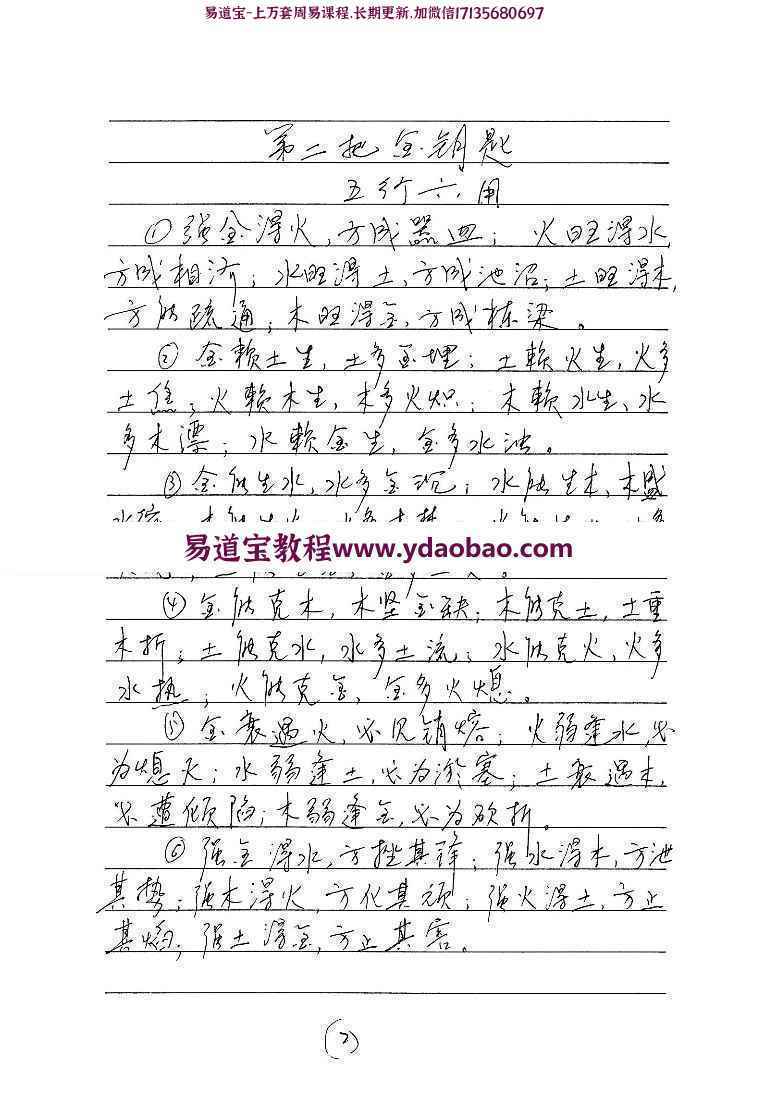 易道宝-上万套周易课程.长期更新.加微信17135680697
第二把金钥匙
五行六用
①强金得火，方成器皿；火旺得水，
方成相济；水旺得土，方成池沼；土旺得木，
方能疏通；木旺得金，方成栋梁。
②金赖土生，土多金埋；土赖火生，火多
土焦；火赖木生，木多火炽；木赖水生，水
多木漂；水赖金生，金多水浊。
③金能生水，水多金沉；水能生木，木盛
易道宝教程www.ydaobao.com
④金能克木，木坚金缺；木能克土，土重
木折；土能克水，水多土流；水能克火，火多
水热；火能克金，金多火熄。
⑤金衰遇火，必见销熔；火弱逢水，必
为熄灭；水弱逢土，必为淤塞；土衰遇木，
必遭倾陷；木弱逢金，必为砍折。
⑥强金得水，方挫其锋；强水得木，方泄
其势；强木得火，方化其顽；强火得土，方止
其焰；强土得金，方止其害。
(2)